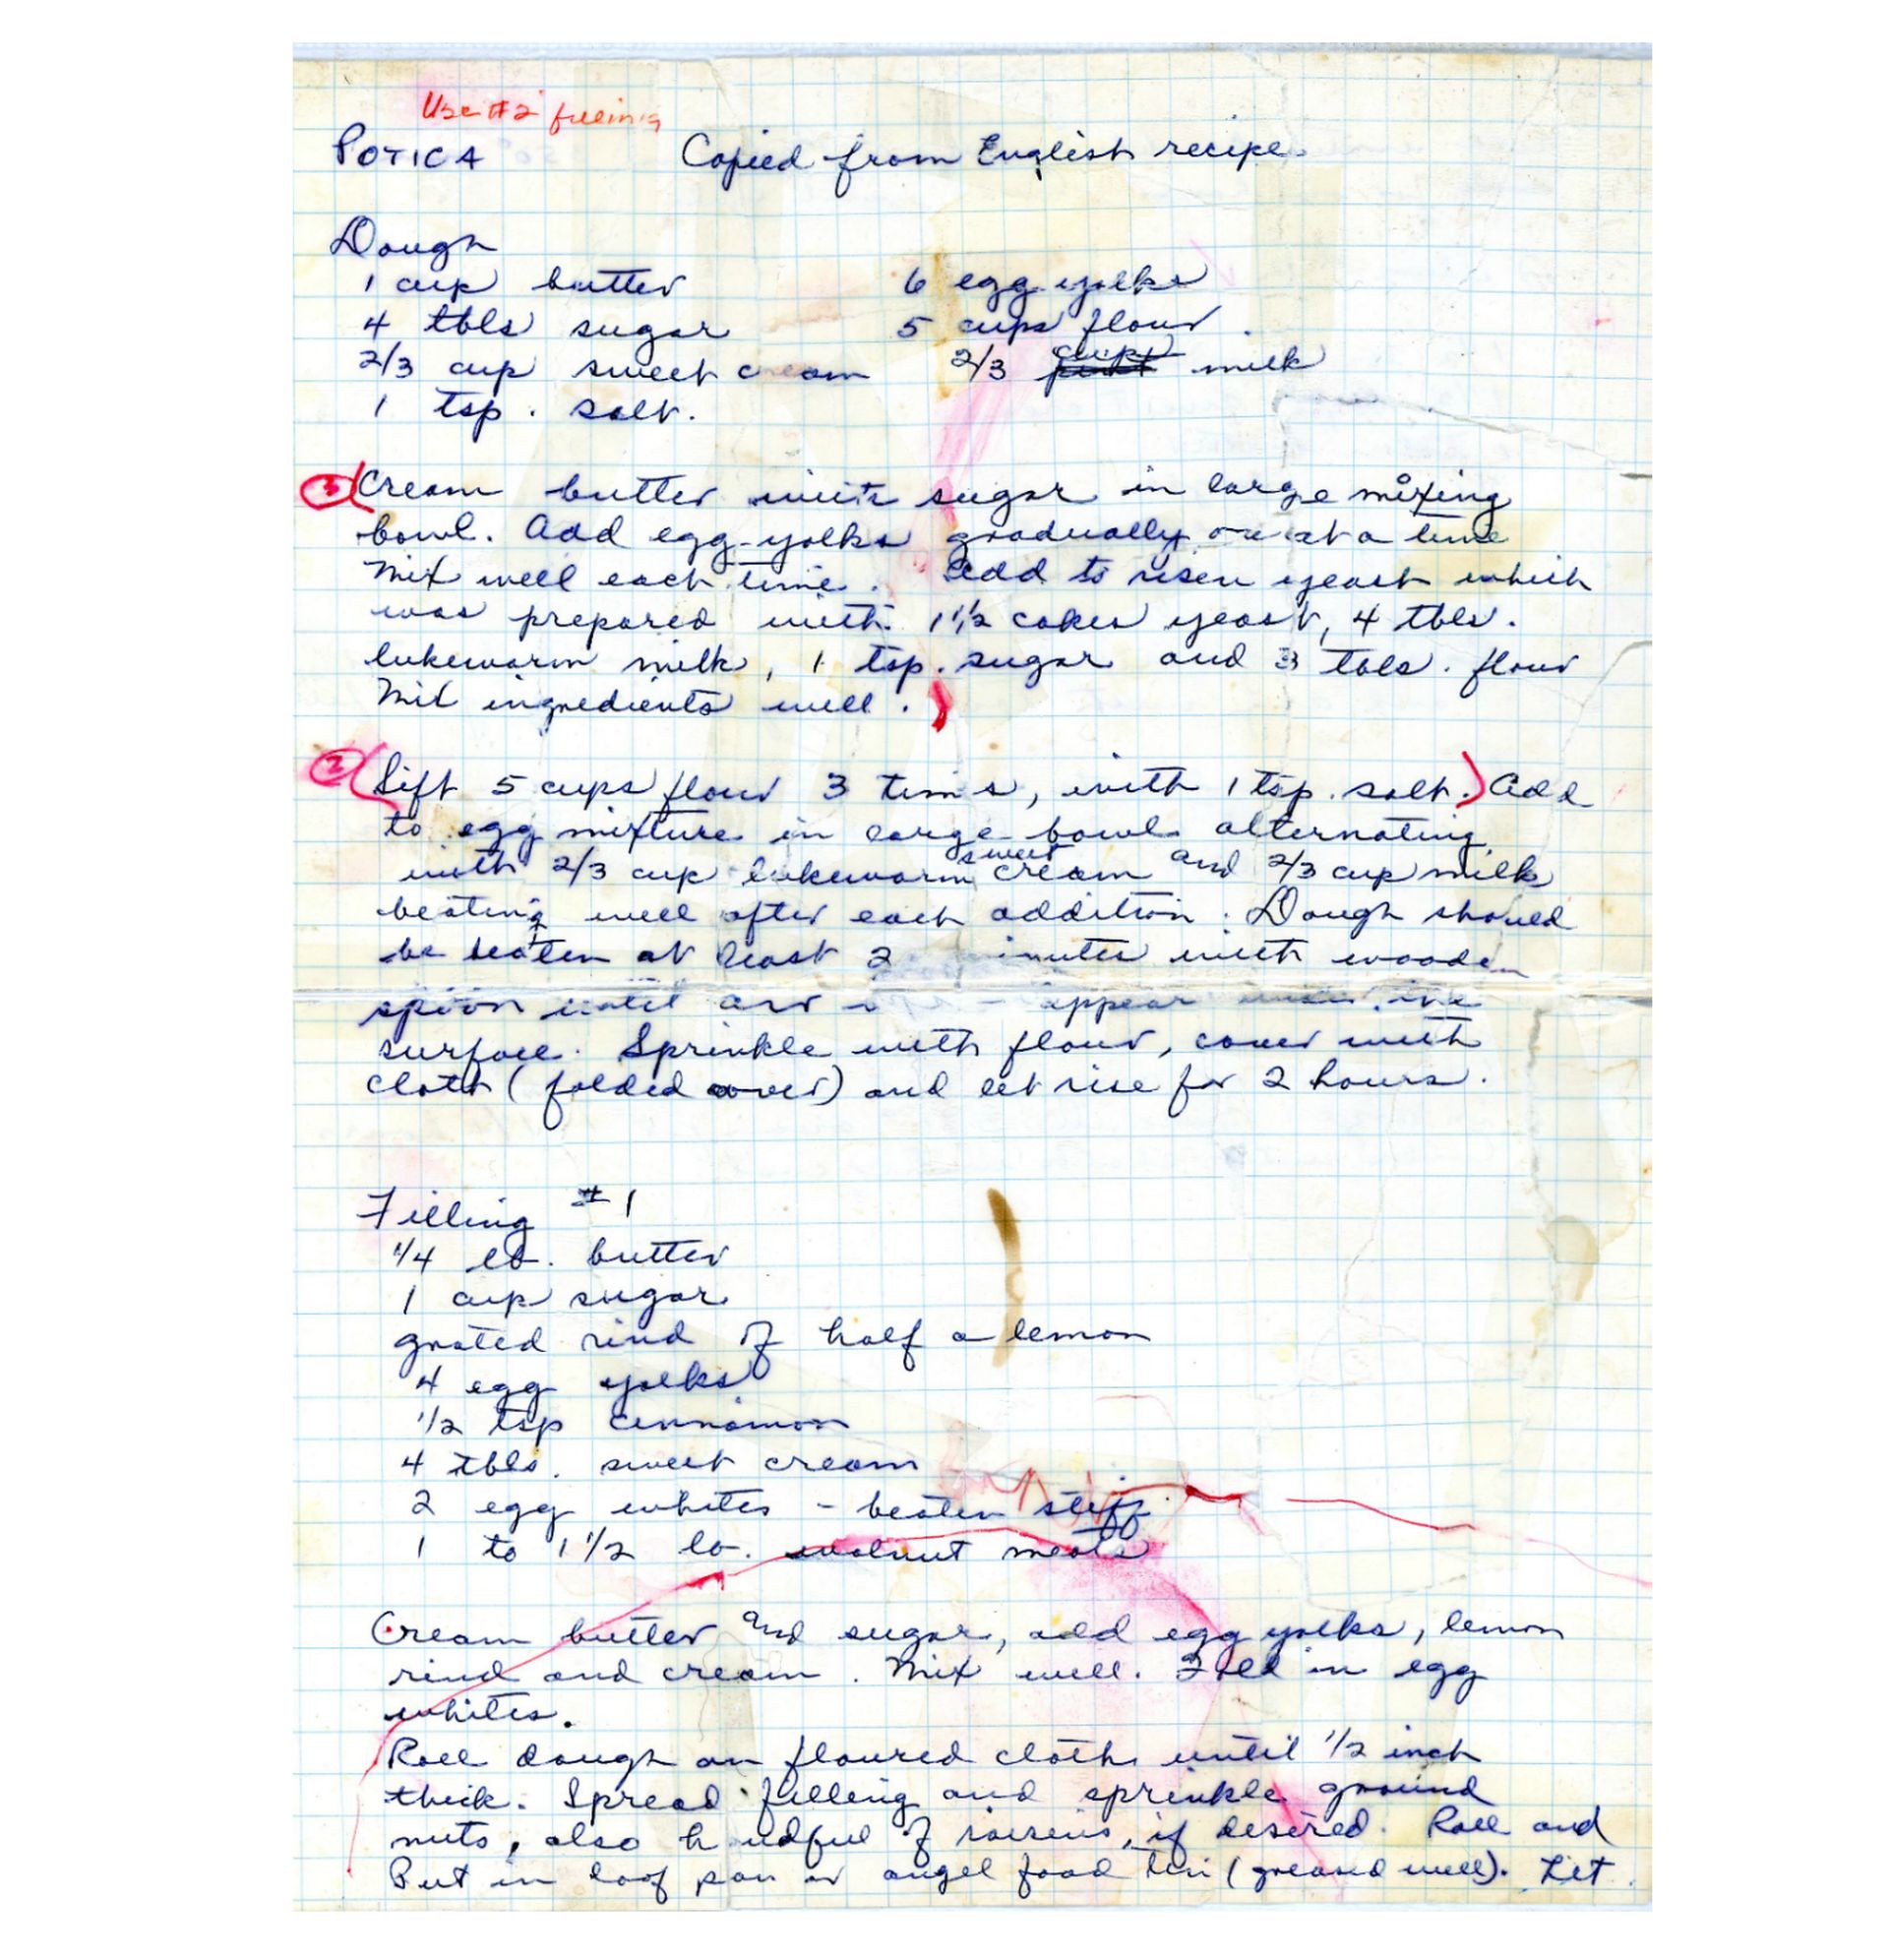 Use #2 filling
POTICA Copied from English recipe.
Dough
1 cup butter 6 egg yolks
4 tbls sugar 5 cups flour.
2/3 cup sweet cream 2/3 cup milk
1 tsp. salt.
Cream butter with sugar in large mixing
bowl. Add egg-yolks gradually one at a time
Mix well each time. Add to risen yeast which
was prepared with 1 1/2 cakes yeast, 4 tbls.
lukewarm milk, 1 tsp. sugar and 3 tbls. flour
Mix ingredients well.)
2 (Sift 5 cups flour 3 times, with 1 tsp. salt.) Add
to egg mixture in large bowl alternating
with 2/3 cup lukewarm sweet cream and 2/3 cup milk
beating well after each addition. Dough should
be beaten at least 2 minutes with wooden
spoon until appear
surface. Sprinkle with flour, cover with
cloth (folded over) and let rise for 2 hours.
Filling #1
1/4 lb. butter
1 cup sugar
grated rind of half a lemon
4 egg yolks
1/2 tsp cinnamon
4 tbls. sweet cream
2 egg whites - beaten stiff
1 to 1 1/2 lb. walnut meats
Cream butter and sugar, add egg yolks, lemon
rind and cream. Mix well. Fold in egg
whites.
Roll dough on floured cloth until 1/2 inch
thick. Spread filling and sprinkle ground
nuts, also handful of raisins, if desired. Roll and
Put in loaf pan or angel food tin (greased well). Let